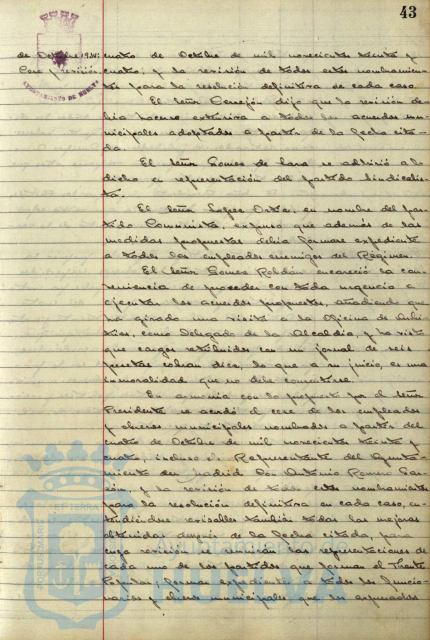 43
de Octubre 1934:
Con previsión
AYUNTAMIENTO DE HUELVA
cuatro de Octubre de mil novecientos treinta y
cuatro; y la revisión de todos estos nombramien-
tos para la resolución definitiva de cada caso.
El señor Cerejón dijo que la revisión de-
bía hacerse extensiva a todos los acuerdos mu-
nicipales adoptados a partir de la fecha cita-
da.
El señor Gomez de Lara se adhirió a lo
dicho en representación del partido Sindicalis-
ta.
El señor Lopez Ortiz, en nombre del par-
tido Comunista, expuso que además de las
medidas propuestas debía formarse expediente
a todos los empleados enemigos del Régimen.
El señor Gomez Roldán encareció la con-
veniencia de proceder con toda urgencia a
ejecutar los acuerdos propuestos, añadiendo que
ha girado una visita a la Oficina de Arbi-
trios, como Delegado de la Alcaldía, y ha visto
que cargos retribuidos con un jornal de seis
pesetas cobran diez, lo que a su juicio, es una
inmoralidad que no debe consentirse.
En armonia con lo propuesto por el señor
Presidente se acordó el cese de los empleados
y obreros municipales nombrados a partir del
cuatro de Octubre de mil novecientos treinta y
cuatro, incluso el Representante del Ayunta-
miento en Madrid Don Antonio Romero Gar-
zón, y la revisión de todos estos nombramientos
para la resolución definitiva en cada caso, en-
tendiéndose revisables también todas las mejoras
obtenidas después de la fecha citada, para
cuya revisión se reunirán las representaciones de
cada uno de los partidos que forman el Frente
Popular; formar expedientes a todos los funcio-
narios y obreros municipales que los